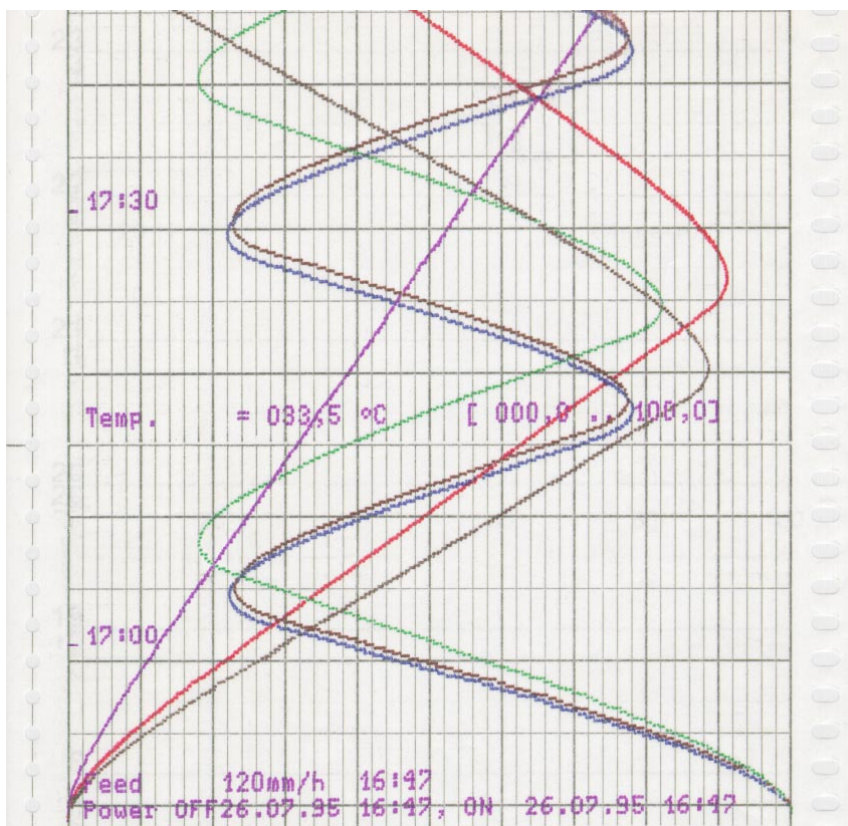 17:30
Temp. = 033,5 ºC [ 000,0 .. 100,0]
17:00
Feed 120mm/h 16:47
Power OFF26.07.95 16:47, ON 26.07.95 16:47